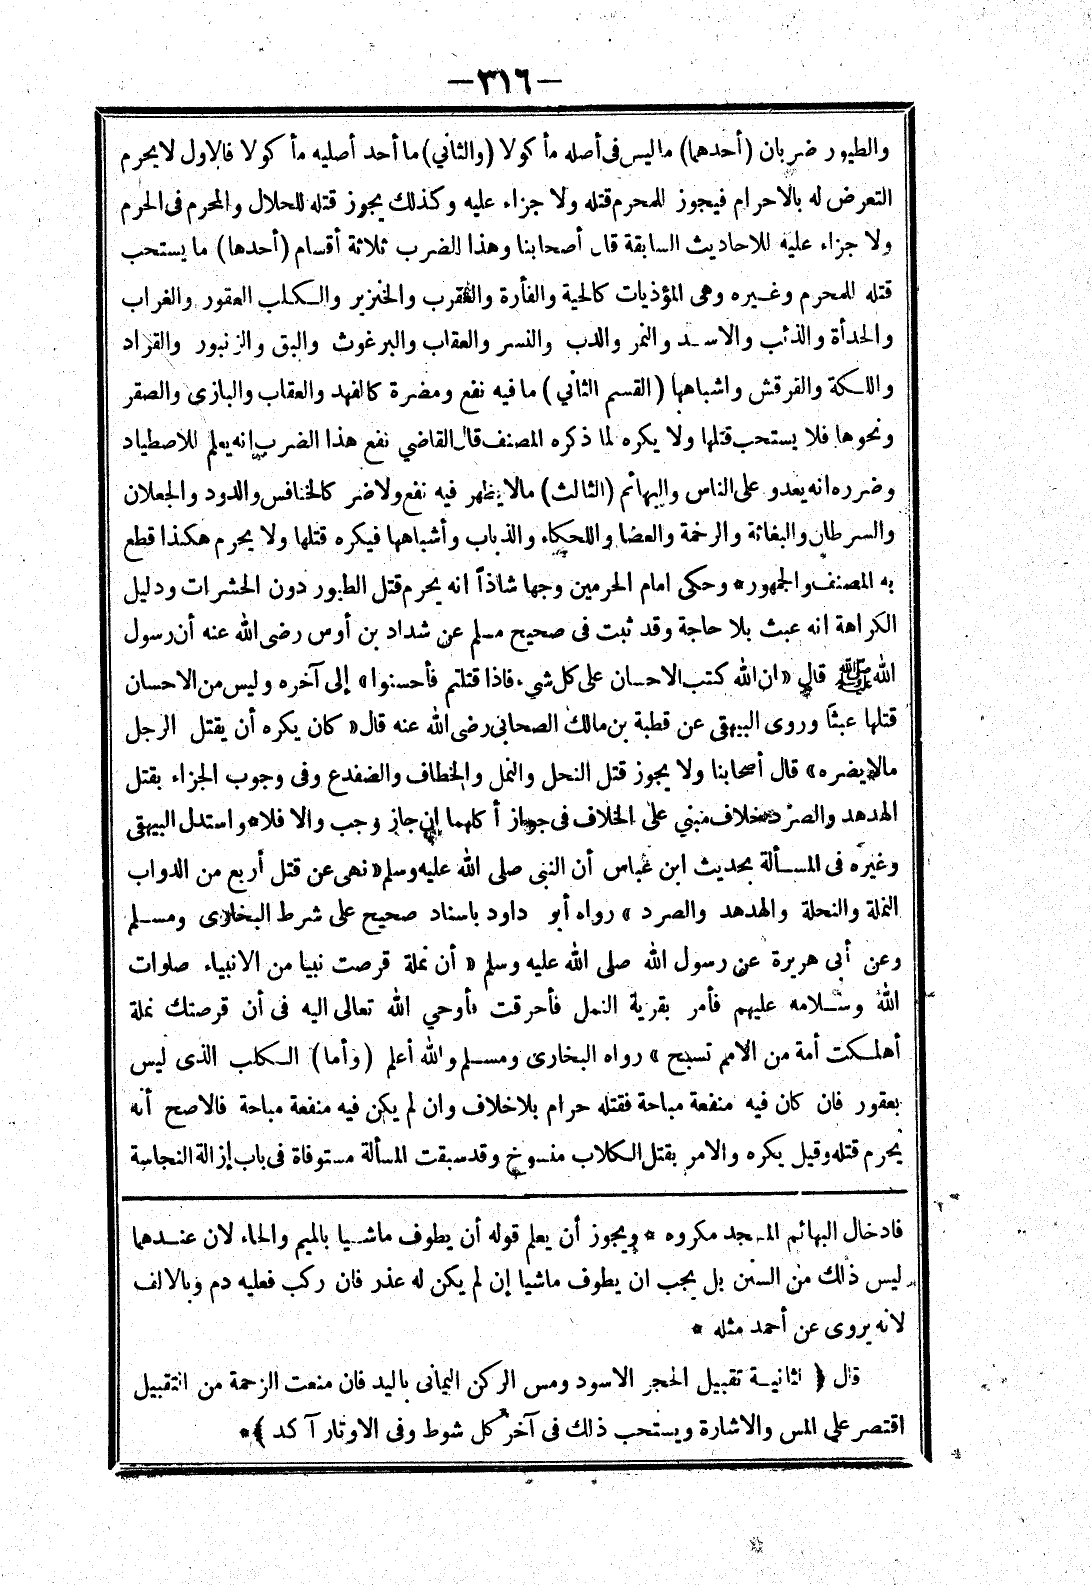 —٣١٦—
والطيور ضربان (أحدهما) ما ليس فى أصله مأ كولا (والثاني) ما أحد أصليه مأ كولا فالاول لا يحرم
التعرض له بالاحرام فيجوز للمحرم قتله ولا جزاء عليه وكذلك يجوز قتله للحلال والمحرم فى الحرم
ولا جزاء عليه للاحاديث السابقة قال أصحابنا وهذا الضرب ثلاثة أقسام (أحدها) ما يستحب
قتله للمحرم وغيره وهى المؤذيات كالحية والفأرة والعقرب والخنزير والكلب العقور والغراب
والحدأة والذئب والاسد والنمر والدب والنسر والعقاب والبرغوث والبق والزنبور والقراد
واللكة والفرقش واشباهها (القسم الثاني) ما فيه نفع ومضرة كالفهد والعقاب والبازى والصقر
ونحوها فلا يستحب قتلها ولا يكره لما ذكره المصنف قال القاضي نفع هذا الضرب انه يعلم للاصطياد
وضرره انه يعدو على الناس والبهائم (الثالث) مالا يظهر فيه نفع ولا ضر كالخنافس والدود والجعلان
والسرطان والبغاثة والرخمة والعضا واللحكاء والذباب وأشباهها فيكره قتلها ولا يحرم هكذا قطع
به المصنف والجمهور* وحكى امام الحرمين وجها شاذاً انه يحرم قتل الطيور دون الحشرات ودليل
الكراهة انه عبث بلا حاجة وقد ثبت فى صحيح مسلم عن شداد بن أوس رضى الله عنه أن رسول
الله ﷺ قال «ان الله كتب الاحسان على كل شىء فاذا قتلتم فأحسنوا» إلى آخره وليس من الاحسان
قتلها عبثاً وروى البيهقى عن قطبة بن مالك الصحابى رضى الله عنه قال «كان يكره أن يقتل الرجل
مالا يضره» قال أصحابنا ولا يجوز قتل النحل والنمل والخطاف والضفدع وفى وجوب الجزاء بقتل
الهدهد والصرد خلاف مبني على الخلاف فى جواز أ كلهما إن جاز وجب والا فلا* واستدل البيهقى
وغيره فى المسألة بحديث ابن عباس أن النبى صلى الله عليه وسلم «نهى عن قتل أربع من الدواب
النملة والنحلة والهدهد والصرد» رواه أبو داود باسناد صحيح على شرط البخارى ومسلم
وعن أبى هريرة عن رسول الله صلى الله عليه وسلم «أن نملة قرصت نبيا من الانبياء صلوات
الله وسلامه عليهم فأمر بقرية النمل فأحرقت فأوحي الله تعالى اليه فى أن قرصتك نملة
أهلكت أمة من الامم تسبح» رواه البخارى ومسلم والله أعلم (وأما) الكلب الذى ليس
بعقور فان كان فيه منفعة مباحة فقتله حرام بلاخلاف وان لم يكن فيه منفعة مباحة فالاصح أنه
يحرم قتله وقيل يكره والامر بقتل الكلاب منسوخ وقد سبقت المسألة مستوفاة فى باب إزالة النجاسة
فادخال البهائم المسجد مكروه * ويجوز أن يعلم قوله أن يطوف ماشيا بالميم والحاء لان عندهما
ليس ذلك من السنن بل يجب ان يطوف ماشيا إن لم يكن له عذر فان ركب فعليه دم وبالالف
لانه يروى عن أحمد مثله *
قال ﴿الثانية تقبيل الحجر الاسود ومس الركن اليمانى باليد فان منعت الزحمة من التقبيل
اقتصر على المس والاشارة ويستحب ذلك فى آخر كل شوط وفى الاوتار آ كد﴾*